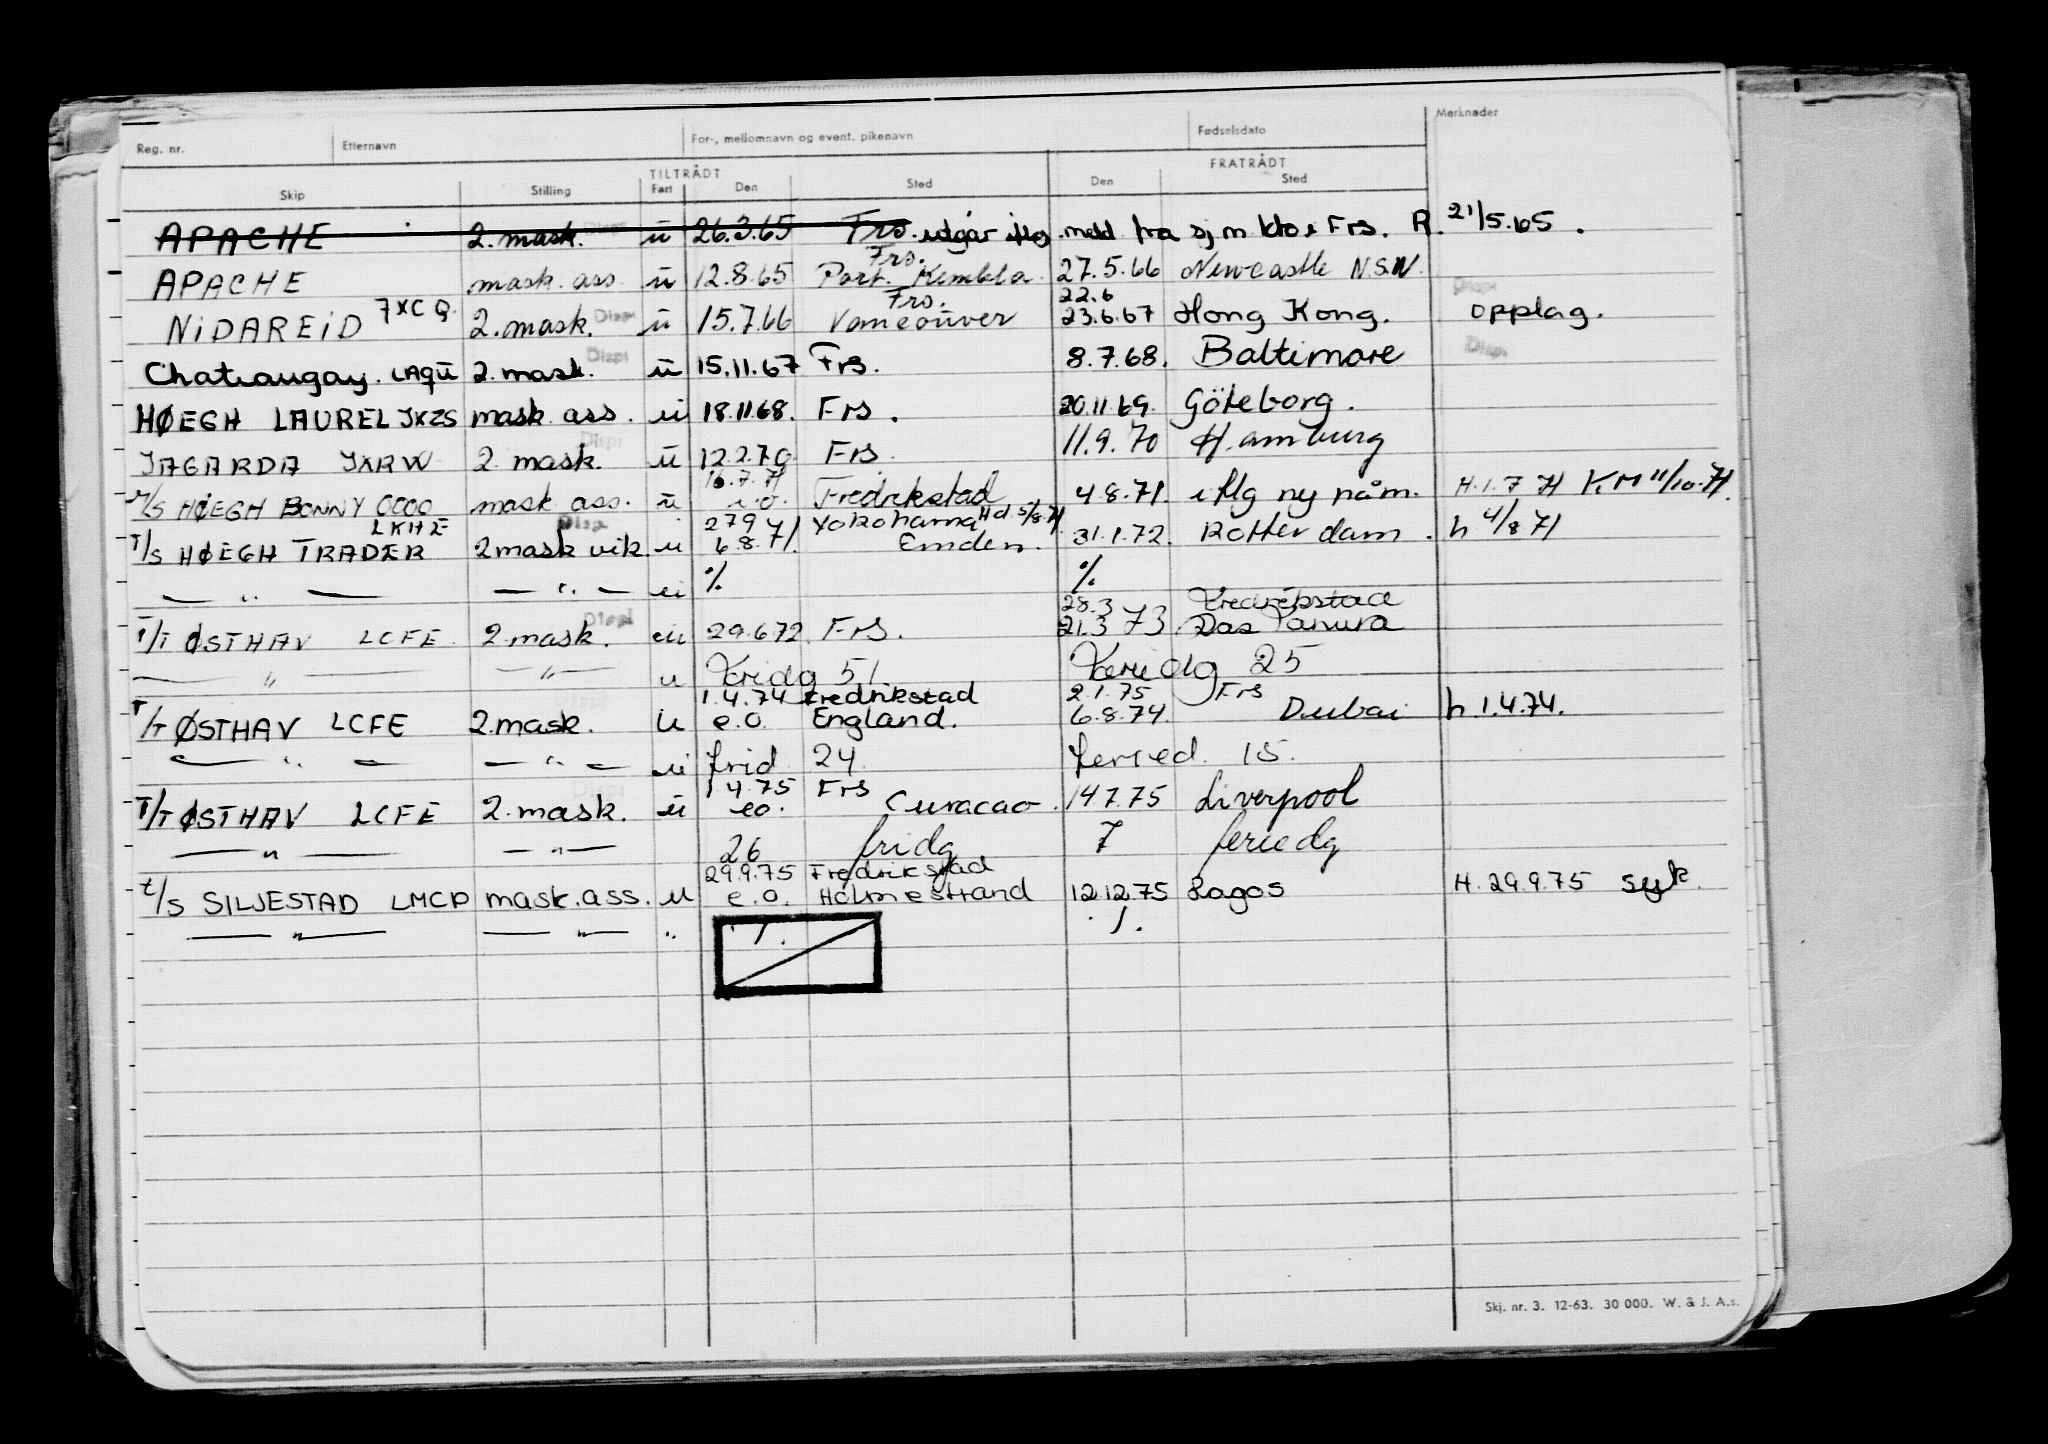 Reg. nr. Etternavn For-, mellomnavn og event. pikenavn Fødselsdato Merknader
TILTRÅDT FRATRÅDT
Skip Stilling Fart Den Sted Den Sted
APACHE 2. mask. Dispi ü 26.3.65 Frs. utgår iflg. meld fra sj m kto i Frs. R. 21/5.65.
Frs.
APACHE mask. ass. ü 12.8.65 Port. Kembla. 27.5.66 Newcastle N.S.W. Dispi
Frs. 22.6
NiDAREiD 7XCQ. 2. mask. Dispi ü 15.7.66 Vancouver 23.6.67 Hong Kong. opplag.
Chateaugay. LAQÜ 2. mask. Dispi ü 15.11.67 Frs. 8.7.68. Baltimore Dispi
HØEGH LAUREL JXZS mask. ass. ü 18.11.68. Frs. 20.11.69. Göteborg.
JAGARDA JXRW 2. mask. Dispi ü 12.2.70 Frs. 11.9.70 Hamburg
16.7.71
M/S HØEGH BONNY OOOO mask. ass. ü i.o. Fredrikstad 4.8.71. iflg ny påm. H.1.7 71 KM 11/10.71.
LKHE Disp 27.9 71 Yokohama Hd. 5/8.71
T/S HØEGH TRADER 2 mask vik. u 6.8.71. Emden. 31.1.72. Rotterdam. h 4/8 71
— " — — " — u % %
28.3 Fredrikstad
T/T ØSTHAV LCFE. 2. mask. Dispi u 29.6.72. Frs. 21.3 73 Ras Tanura
— " — — " — u Fridg 51 Feriedg 25
1.4.74 Fredrikstad 2.1.75 Frs
T/T ØSTHAV LCFE 2. mask. u e.o. England. 6.8.74. Dubai h.1.4.74.
— " — — " — u frid 24 feried. 15.
1.4.75 Frs
T/T ØSTHAV LCFE 2. mask. ü eo. Curacao. 14.7.75 Liverpool
— " — — " — 26 fridg 7 feriedg
29.9.75 Fredrikstad
t/s SILJESTAD LMCP mask. ass. u e.o. Holmestrand 12.12.75 Lagos H. 29.9.75 syk.
— " — — " — " ./. ./.
Skj. nr. 3. 12-63. 30 000. W. & J. A.s.